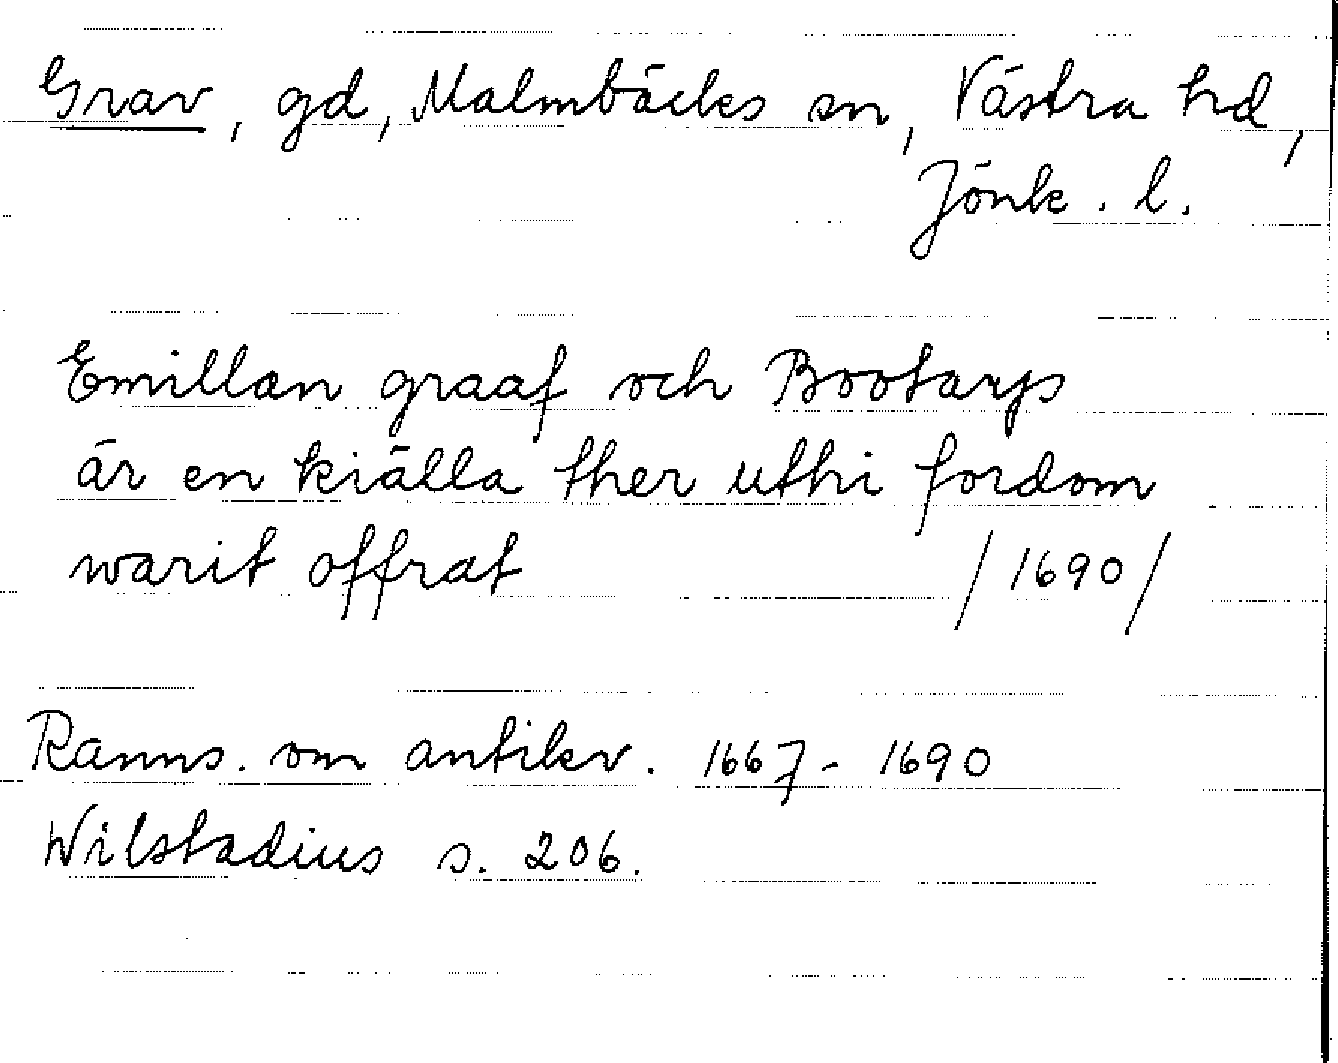 Grav, gd, Malmbäcks sn, Västra hd,
Jönk. l.
Emillan graaf och Bootarps
är en kiälla ther uthi fordom
warit offrat /1690/
Ranns. om antikv. 1667-1690
Wilstadius s. 206.